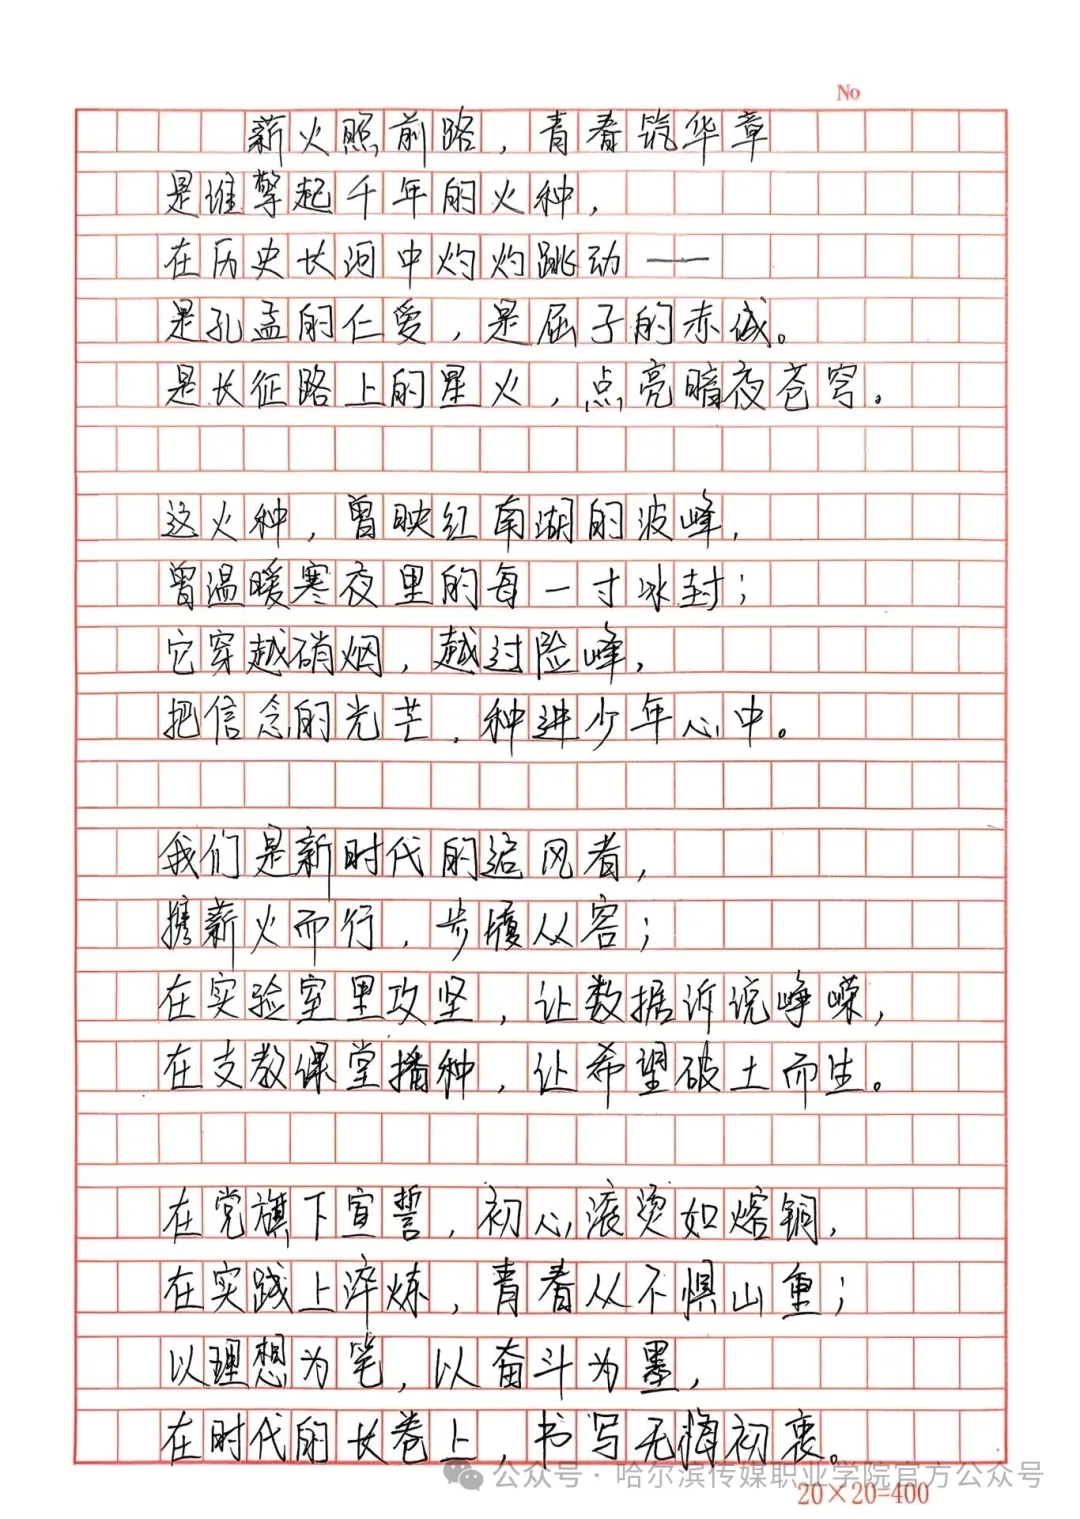 No
薪火照前路，青春筑华章
是谁擎起千年的火种，
在历史长河中灼灼跳动——
是孔孟的仁爱，是屈子的赤诚。
是长征路上的星火，点亮暗夜苍穹。
这火种，曾映红南湖的波峰，
曾温暖寒夜里的每一寸冰封；
它穿越硝烟，越过险峰，
把信念的光芒，种进少年心中。
我们是新时代的追风者，
携薪火而行，步履从容；
在实验室里攻坚，让数据诉说峥嵘，
在支教课堂播种，让希望破土而生。
在党旗下宣誓，初心滚烫如熔铜，
在实践上淬炼，青春从不惧山重；
以理想为笔，以奋斗为墨，
在时代的长卷上，书写无悔初衷。
公众号·哈尔滨传媒职业学院官方公众号
20×20=400